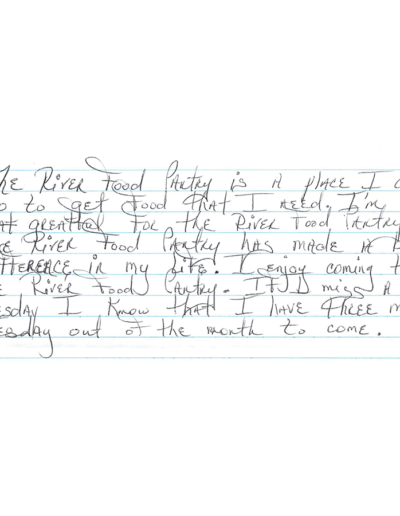 he River Food Pantry is a place I c
o to get food that I need. I'm
at greatful for the River Food Pantry
e River Food Pantry has made a b
fference in my life. I enjoy coming t
e River Food Pantry. If I miss a
esday I know that I have three m
esday out of the month to come.